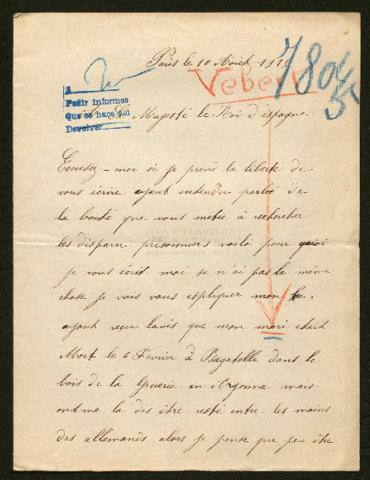 Paris le 10 Août 1915
Veber
7804
Pedir informes
Que se haga aqui
Devolver
Majesté le Roi d'espagne
Excusez-moi si je prend la liberté de
vous écrire ayant entendu parlé de
la bonté que vous metté à rechercher
les disparu prisonniers voilà pour quoi
je vous écrit moi se n'ai pas la même
chose je vais vous expliquer mon
ayant reçu lavis que mon mari était
Mort le 6 Fevrier à Bagatelle dans le
bois de la Gruerie en Argonne mais
on me la dis être resté entre les mains
des allemands alors je pense que peu être